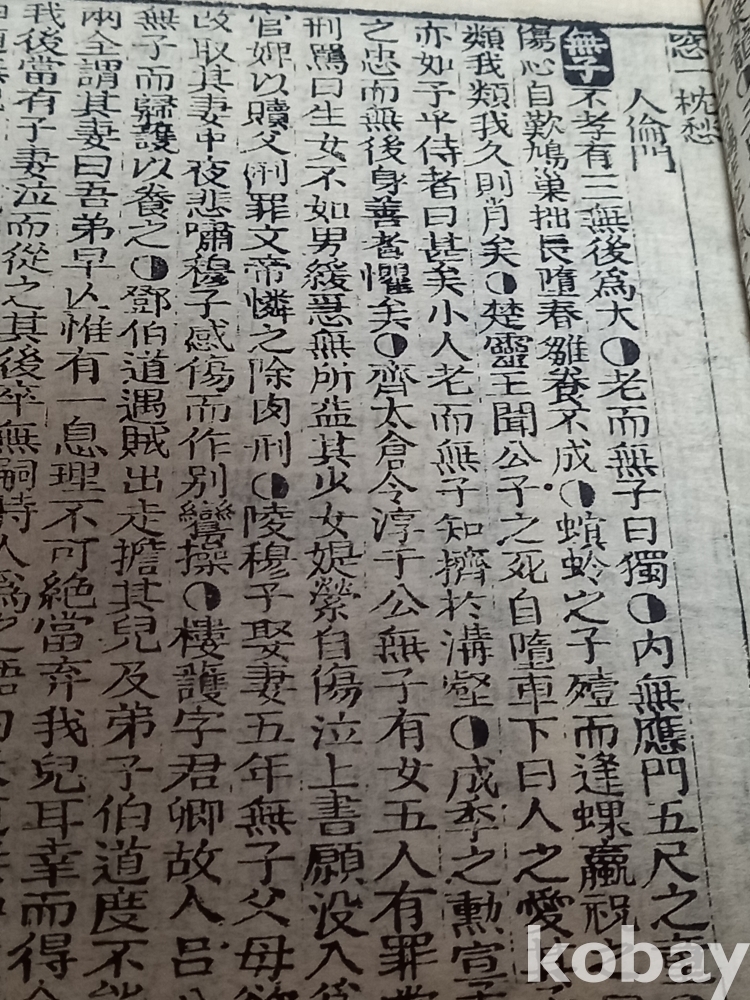 窓一枕愁
人倫門
無子 不孝有三無後爲大◑老而無子曰獨◑内無應門五尺之
傷心自歎鳩巢拙長墮春雛養不成◑螟蛉之子殪而逢蜾蠃祝之
類我類我久則肖矣◑楚靈王聞公子之死自墮車下曰人之愛
亦如予乎侍者曰甚矣小人老而無子知擠於溝壑◑成季之勳宣
之忠而無後身善者懼矣◑齊太倉令淳于公無子有女五人有罪
刑罵曰生女不如男緩急無所益其少女媞縈自傷泣上書願没入
官婢以贖父刑罪文帝憐之除肉刑◑陵穆子娶妻五年無子父母欲
改取其妻中夜悲嘯穆子感傷而作別鸞操◑樓護字君卿故人呂
無子而歸護以養之◑鄧伯道遇賊出走擔其兒及弟子伯道度不
兩全謂其妻曰吾弟早亾惟有一息理不可絶當弃我兒耳幸而得
我後當有子妻泣而從之其後卒無嗣時人爲之語曰
kobay